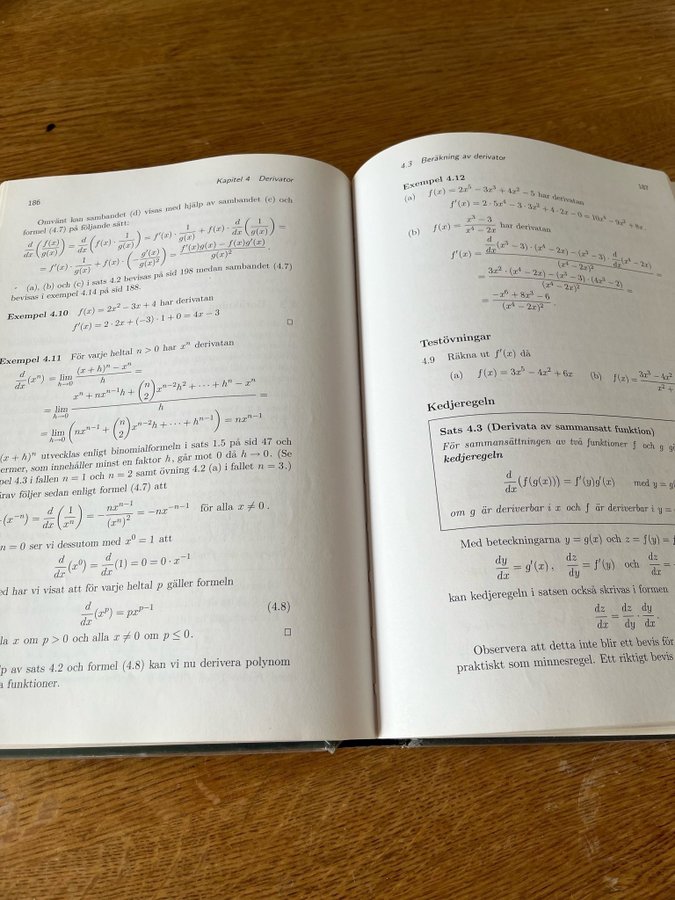 186
Kapitel 4 Derivator
Omvänt kan sambandet (d) visas med hjälp av sambandet (c) och
formel (4.7) på följande sätt:
d/dx (f(x)/g(x)) = d/dx (f(x) · 1/g(x)) = f′(x) · 1/g(x) + f(x) · d/dx (1/g(x)) =
= f′(x) · 1/g(x) + f(x) · (−g′(x)/g(x)²) = (f′(x)g(x) − f(x)g′(x))/g(x)² .
(a), (b) och (c) i sats 4.2 bevisas på sid 198 medan sambandet (4.7)
bevisas i exempel 4.14 på sid 188.
Exempel 4.10 f(x) = 2x² − 3x + 4 har derivatan
f′(x) = 2 · 2x + (−3) · 1 + 0 = 4x − 3
□
Exempel 4.11 För varje heltal n > 0 har xⁿ derivatan
d/dx (xⁿ) = lim h→0 ((x + h)ⁿ − xⁿ)/h =
= lim h→0 (xⁿ + nxⁿ⁻¹h + (n 2)xⁿ⁻²h² + · · · + hⁿ − xⁿ)/h =
= lim h→0 (nxⁿ⁻¹ + (n 2)xⁿ⁻²h + · · · + hⁿ⁻¹) = nxⁿ⁻¹
(x + h)ⁿ utvecklas enligt binomialformeln i sats 1.5 på sid 47 och
ermer, som innehåller minst en faktor h, går mot 0 då h → 0. (Se
pel 4.3 i fallen n = 1 och n = 2 samt övning 4.2 (a) i fallet n = 3.)
ärav följer sedan enligt formel (4.7) att
(x⁻ⁿ) = d/dx (1/xⁿ) = −nxⁿ⁻¹/(xⁿ)² = −nx⁻ⁿ⁻¹ för alla x ≠ 0 .
n = 0 ser vi dessutom med x⁰ = 1 att
d/dx (x⁰) = d/dx (1) = 0 = 0 · x⁻¹
ed har vi visat att för varje heltal p gäller formeln
d/dx (xᵖ) = pxᵖ⁻¹ (4.8)
la x om p > 0 och alla x ≠ 0 om p ≤ 0.
□
lp av sats 4.2 och formel (4.8) kan vi nu derivera polynom
a funktioner.
4.3 Beräkning av derivator
187
Exempel 4.12
(a) f(x) = 2x⁵ − 3x³ + 4x² − 5 har derivatan
f′(x) = 2 · 5x⁴ − 3 · 3x² + 4 · 2x − 0 = 10x⁴ − 9x² + 8x .
(b) f(x) = (x³ − 3)/(x⁴ − 2x) har derivatan
f′(x) = (d/dx (x³ − 3) · (x⁴ − 2x) − (x³ − 3) · d/dx (x⁴ − 2x))/(x⁴ − 2x)² =
= (3x² · (x⁴ − 2x) − (x³ − 3) · (4x³ − 2))/(x⁴ − 2x)² =
= (−x⁶ + 8x³ − 6)/(x⁴ − 2x)² .
Testövningar
4.9 Räkna ut f′(x) då
(a) f(x) = 3x⁵ − 4x² + 6x (b) f(x) = (3x³ − 4x²)/(x² +
Kedjeregeln
Sats 4.3 (Derivata av sammansatt funktion)
För sammansättningen av två funktioner f och g
kedjeregeln
d/dx (f(g(x))) = f′(y)g′(x) med y = g(
om g är deriverbar i x och f är deriverbar i y =
Med beteckningarna y = g(x) och z = f(y) =
dy/dx = g′(x) , dz/dy = f′(y) och dz/dx =
kan kedjeregeln i satsen också skrivas i formen
dz/dx = dz/dy · dy/dx .
Observera att detta inte blir ett bevis för
praktiskt som minnesregel. Ett riktigt bevis